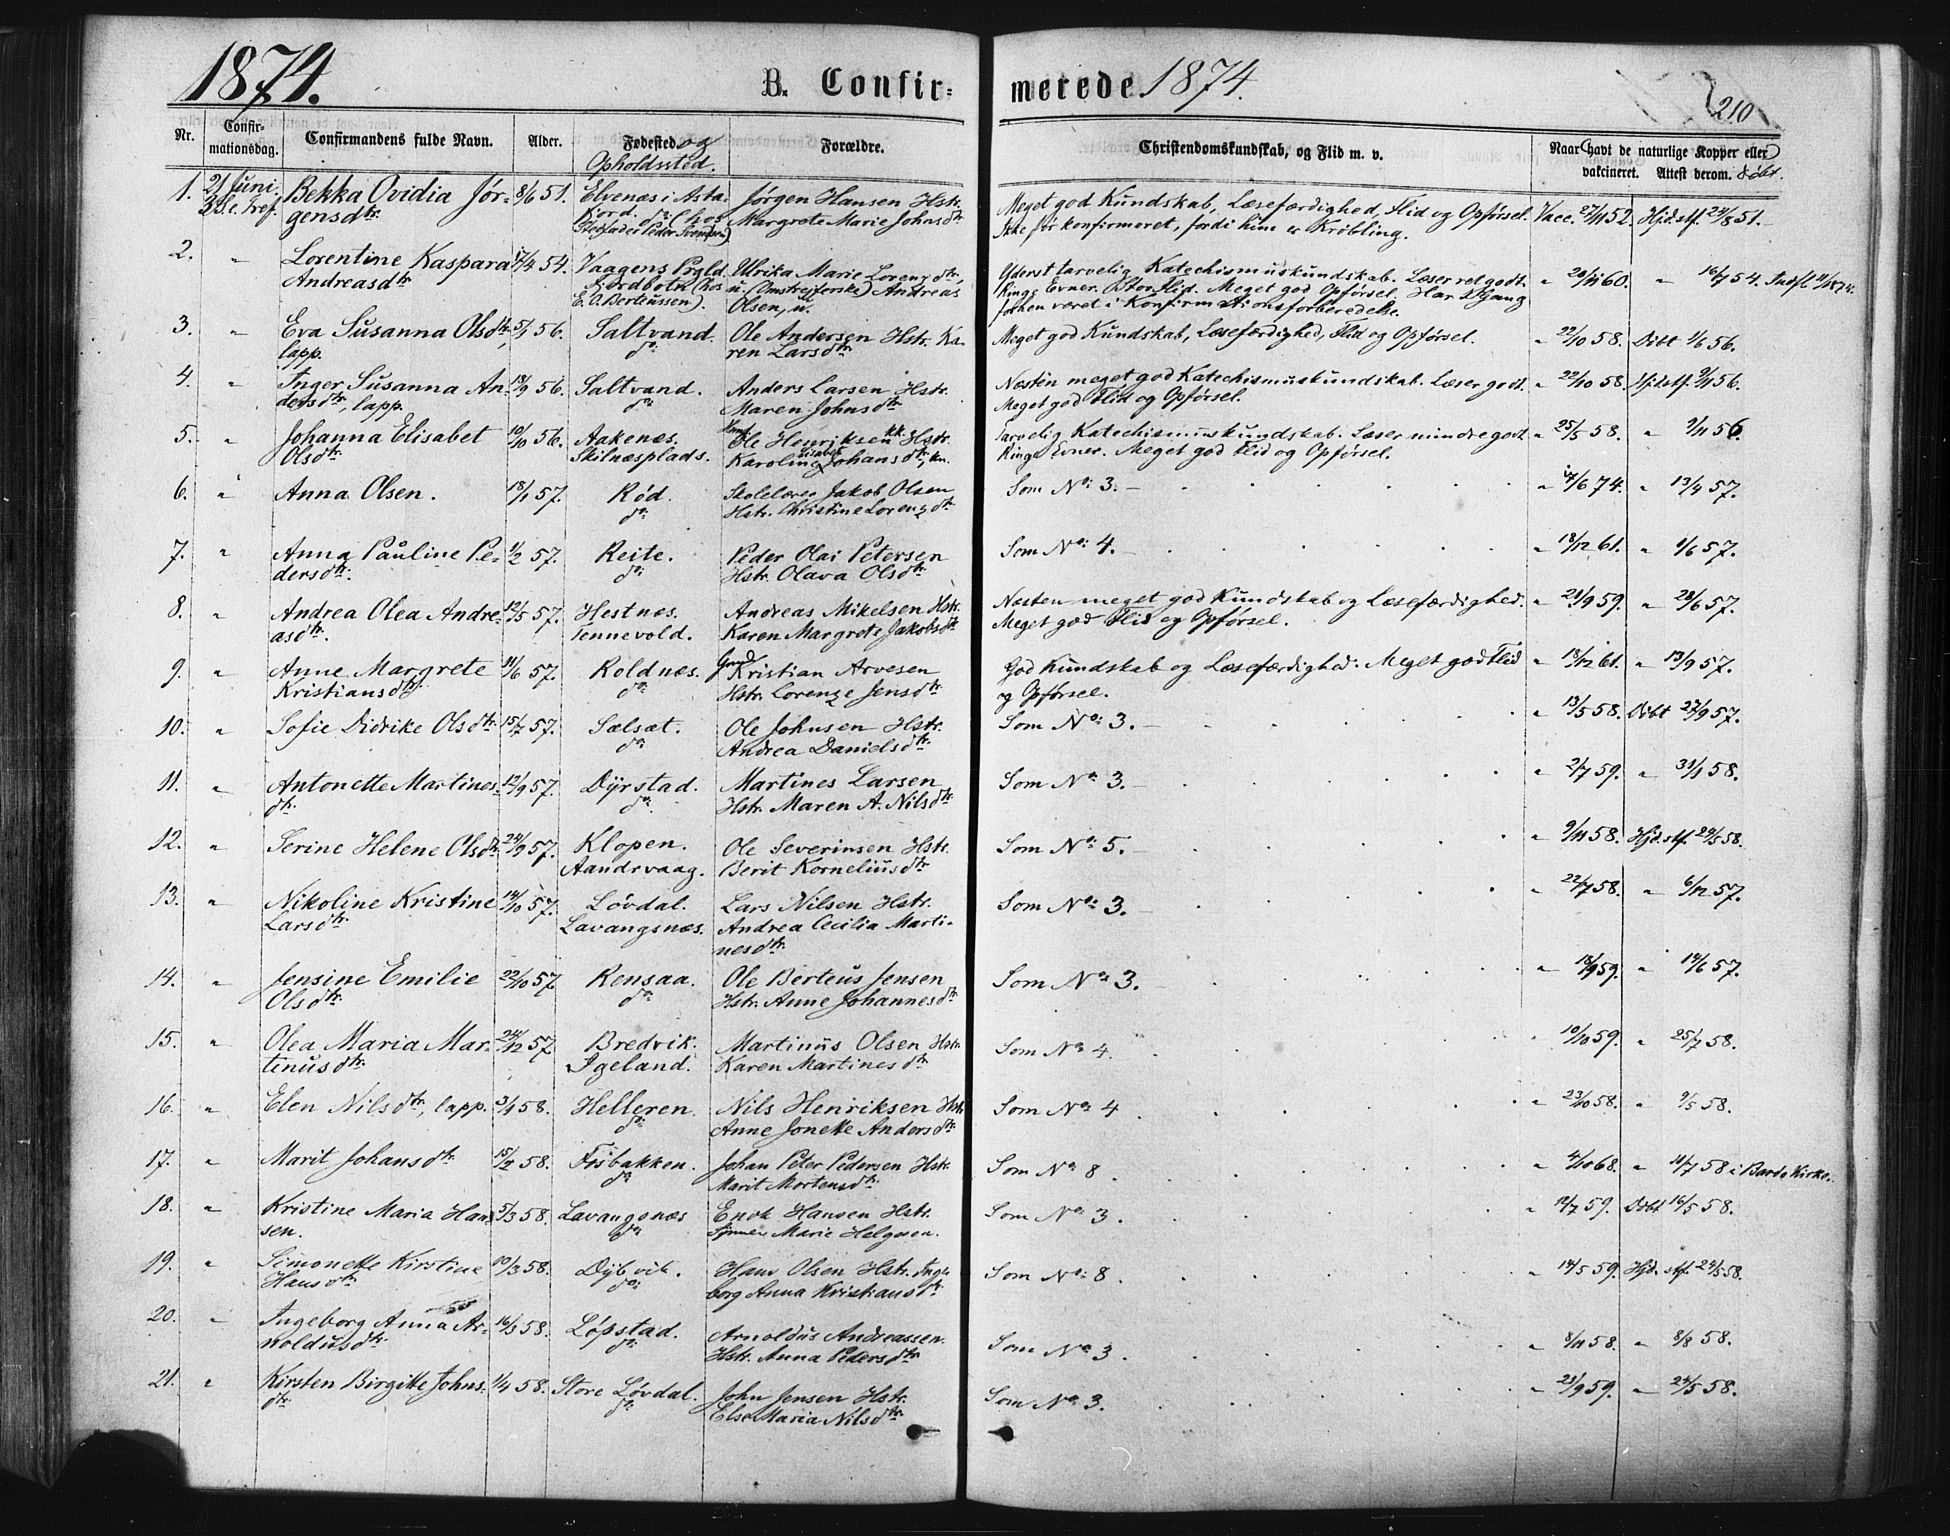 1874.
B. Confir-
merede 1874.
210
Nr.
Confir-
mationsdag.
Confirmandens fulde Navn.
Alder.
Fødested og
Opholdssted.
Forældre.
Christendomskundskab, og Flid m. v.
Naar havt de naturlige Kopper eller
vakcineret. Attest derom.
1. 21 Juni Bekka Ovidia Jør- 8/6 51. Elvenæs i Asta- Jørgen Hansen Hstr. Meget god Kundskab, Læsefærdighed, Flid og Opførsel. Vacc. 27/11 52. Hjd. stf. 24/8 51.
gensdtr. fjord. do (hos Margrete Marie Johnsdtr. Ikke før konfirmeret, fordi hun er Krøbling.
Stedfader Peder Svendsen)
2. " Lorentine Kaspara 17/4 54. Vaagens Prgld. Ulrika Marie Lorenzdtr, Yderst tarvelig Katechismuskundskab. Læser ret godt. " 20/11 60. " 16/7 54.
Andreasdtr. Fjordbotn (hos u. (Omstreiferske) Andreas Ringe Evner. Stor Flid. Meget god Opførsel. Har 1 Gang
E. O. Berteussen). Olsen, u. forhen været i Konfirmationsforberedelse.
3. " Eva Susanna Olsdtr, 5/1 56. Saltvand. Ole Andersen Hstr. Ka- Meget god Kundskab, Læsefærdighed, Flid og Opførsel. " 22/10 58. Døbt 1/6 56.
lapp. do ren Larsdtr.
4. " Inger Susanna An- 18/9 56. Saltvand. Anders Larsen Hstr. Næsten meget god Katechismuskundskab. Læser godt. " 22/10 58. Hjdstf. 9/11 56.
dersdtr, lapp. do Maren Johnsdtr. Meget god Flid og Opførsel.
5. " Johanna Elisabet 10/10 56. Aakenæs. Ole Henriksen Hstr. Tarvelig Katechismuskundskab. Læser mindre godt. " 25/5 58. " 9/11 56.
Olsdtr. Skilnæsplads. Karoline Johansdtr, Ringe Evner. Meget god Flid og Opførsel.
6. " Anna Olsen. 18/1 57. Rød. Skolelærer Jakob Olsen Som No 3. " 17/6 74. " 13/4 57.
do Hstr. Christine Lorenzdtr
7. " Anna Pauline Pe- 1/2 57. Reite. Peder Olai Petersen Som No 4. " 18/12 61. " 1/6 57.
dersdtr. do Hstr. Olava Olsdtr
8. " Andrea Olea Andre- 12/5 57. Hestnes. Andreas Mikelsen Hstr. Næsten meget god Kundskab og Læsefærdighed. " 21/9 59. " 28/6 57.
asdtr. Tennevold. Karen Margrete Jakobsdtr Meget god Flid og Opførsel.
9. " Anne Margrete 11/6 57. Roldnæs. Kristian Arvesen God Kundskab og Læsefærdighed. Meget god Flid " 18/12 61. " 13/9 57.
Kristiansdtr. do Hstr. Lorenze Jensdtr og Opførsel.
10. " Sofie Didrike Olsdtr 15/7 57. Sælsæt. Ole Johnsen Hstr. Som No 3. " 13/5 58. Døbt 27/9 57.
do Andrea Danielsdtr.
11. " Antonette Martines- 12/9 57. Dyrstad. Martines Larsen Som No 3. " 2/7 59. " 31/1 58.
dtr. do Hstr. Maren A. Nilsdtr
12. " Serine Helene Olsdtr. 24/9 57. Klopen. Ole Severinsen Hstr. Som No 5. " 9/11 58. Hjd. stf. 24/5 58.
Aandrvaag. Berit Korneliusdtr
13. " Nikoline Kristine 14/10 57. Løvdal. Lars Nilsen Hstr. Som No 3. " 22/7 58. " 6/12 57.
Larsdtr. Lavangsnæs. Andrea Cecilia Marti-
nesdtr.
14. " Jensine Emilie 22/10 57 Rensaa. Ole Berteus Jensen Som No 3. " 18/9 59. " 14/6 57.
Olsdtr. do Hstr. Anne Johannesdtr
15. " Olea Maria Mar- 24/12 57 Bredvik. Martinus Olsen Hstr. Som No 4. " 10/10 59. " 25/7 58.
tinusdtr. Igeland. Karen Martinesdtr
16. " Elen Nilsdtr, lapp. 3/1 58. Helleren. Nils Henriksen Hstr Som No 4. " 23/10 58. " 9/5 58.
do Anne Joneke Andersdtr
17. " Marit Johansdtr. 15/2 58. Fosbakken. Johan Peter Pedersen Hstr. Som No 8. " 4/10 68. " 11/7 58 i Bardo Kirke.
do Marit Mortensdtr.
18. " Kristine Maria Han- 5/3 58. Lavangsnæs Enok Hansen Hstr. Som No 3. " 12/7 59. Døbt 16/5 58.
sen. do Marie Helgesen.
19. " Simonette Kirstine 10/3 58. Dybvik. Hans Olsen Hstr. Inge- Som No 8. " 14/5 59. Hjd. stf. 24/5 58.
Hansdtr. do borg Anna Kristiansdtr
20. " Ingeborg Anna Ar- 16/3 58. Løpstad. Arnoldus Andreassen. Som No 3. " 8/11 58. " 8/8 58.
noldusdtr. do Hstr. Anna Pedersdtr
21. " Kirsten Birgitte Johns- 1/4 58. Store Løvdal. John Jensen Hstr. Som No 3. " 23/9 59. " 24/5 58.
dtr. do Else Maria Nilsdtr.